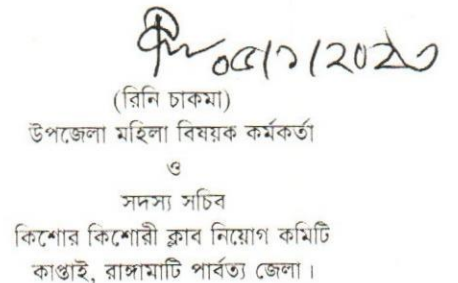 ০৫/১/২০২৩
(রিনি চাকমা)
উপজেলা মহিলা বিষয়ক কর্মকর্তা
ও
সদস্য সচিব
কিশোর কিশোরী ক্লাব নিয়োগ কমিটি
কাপ্তাই, রাঙ্গামাটি পার্বত্য জেলা।